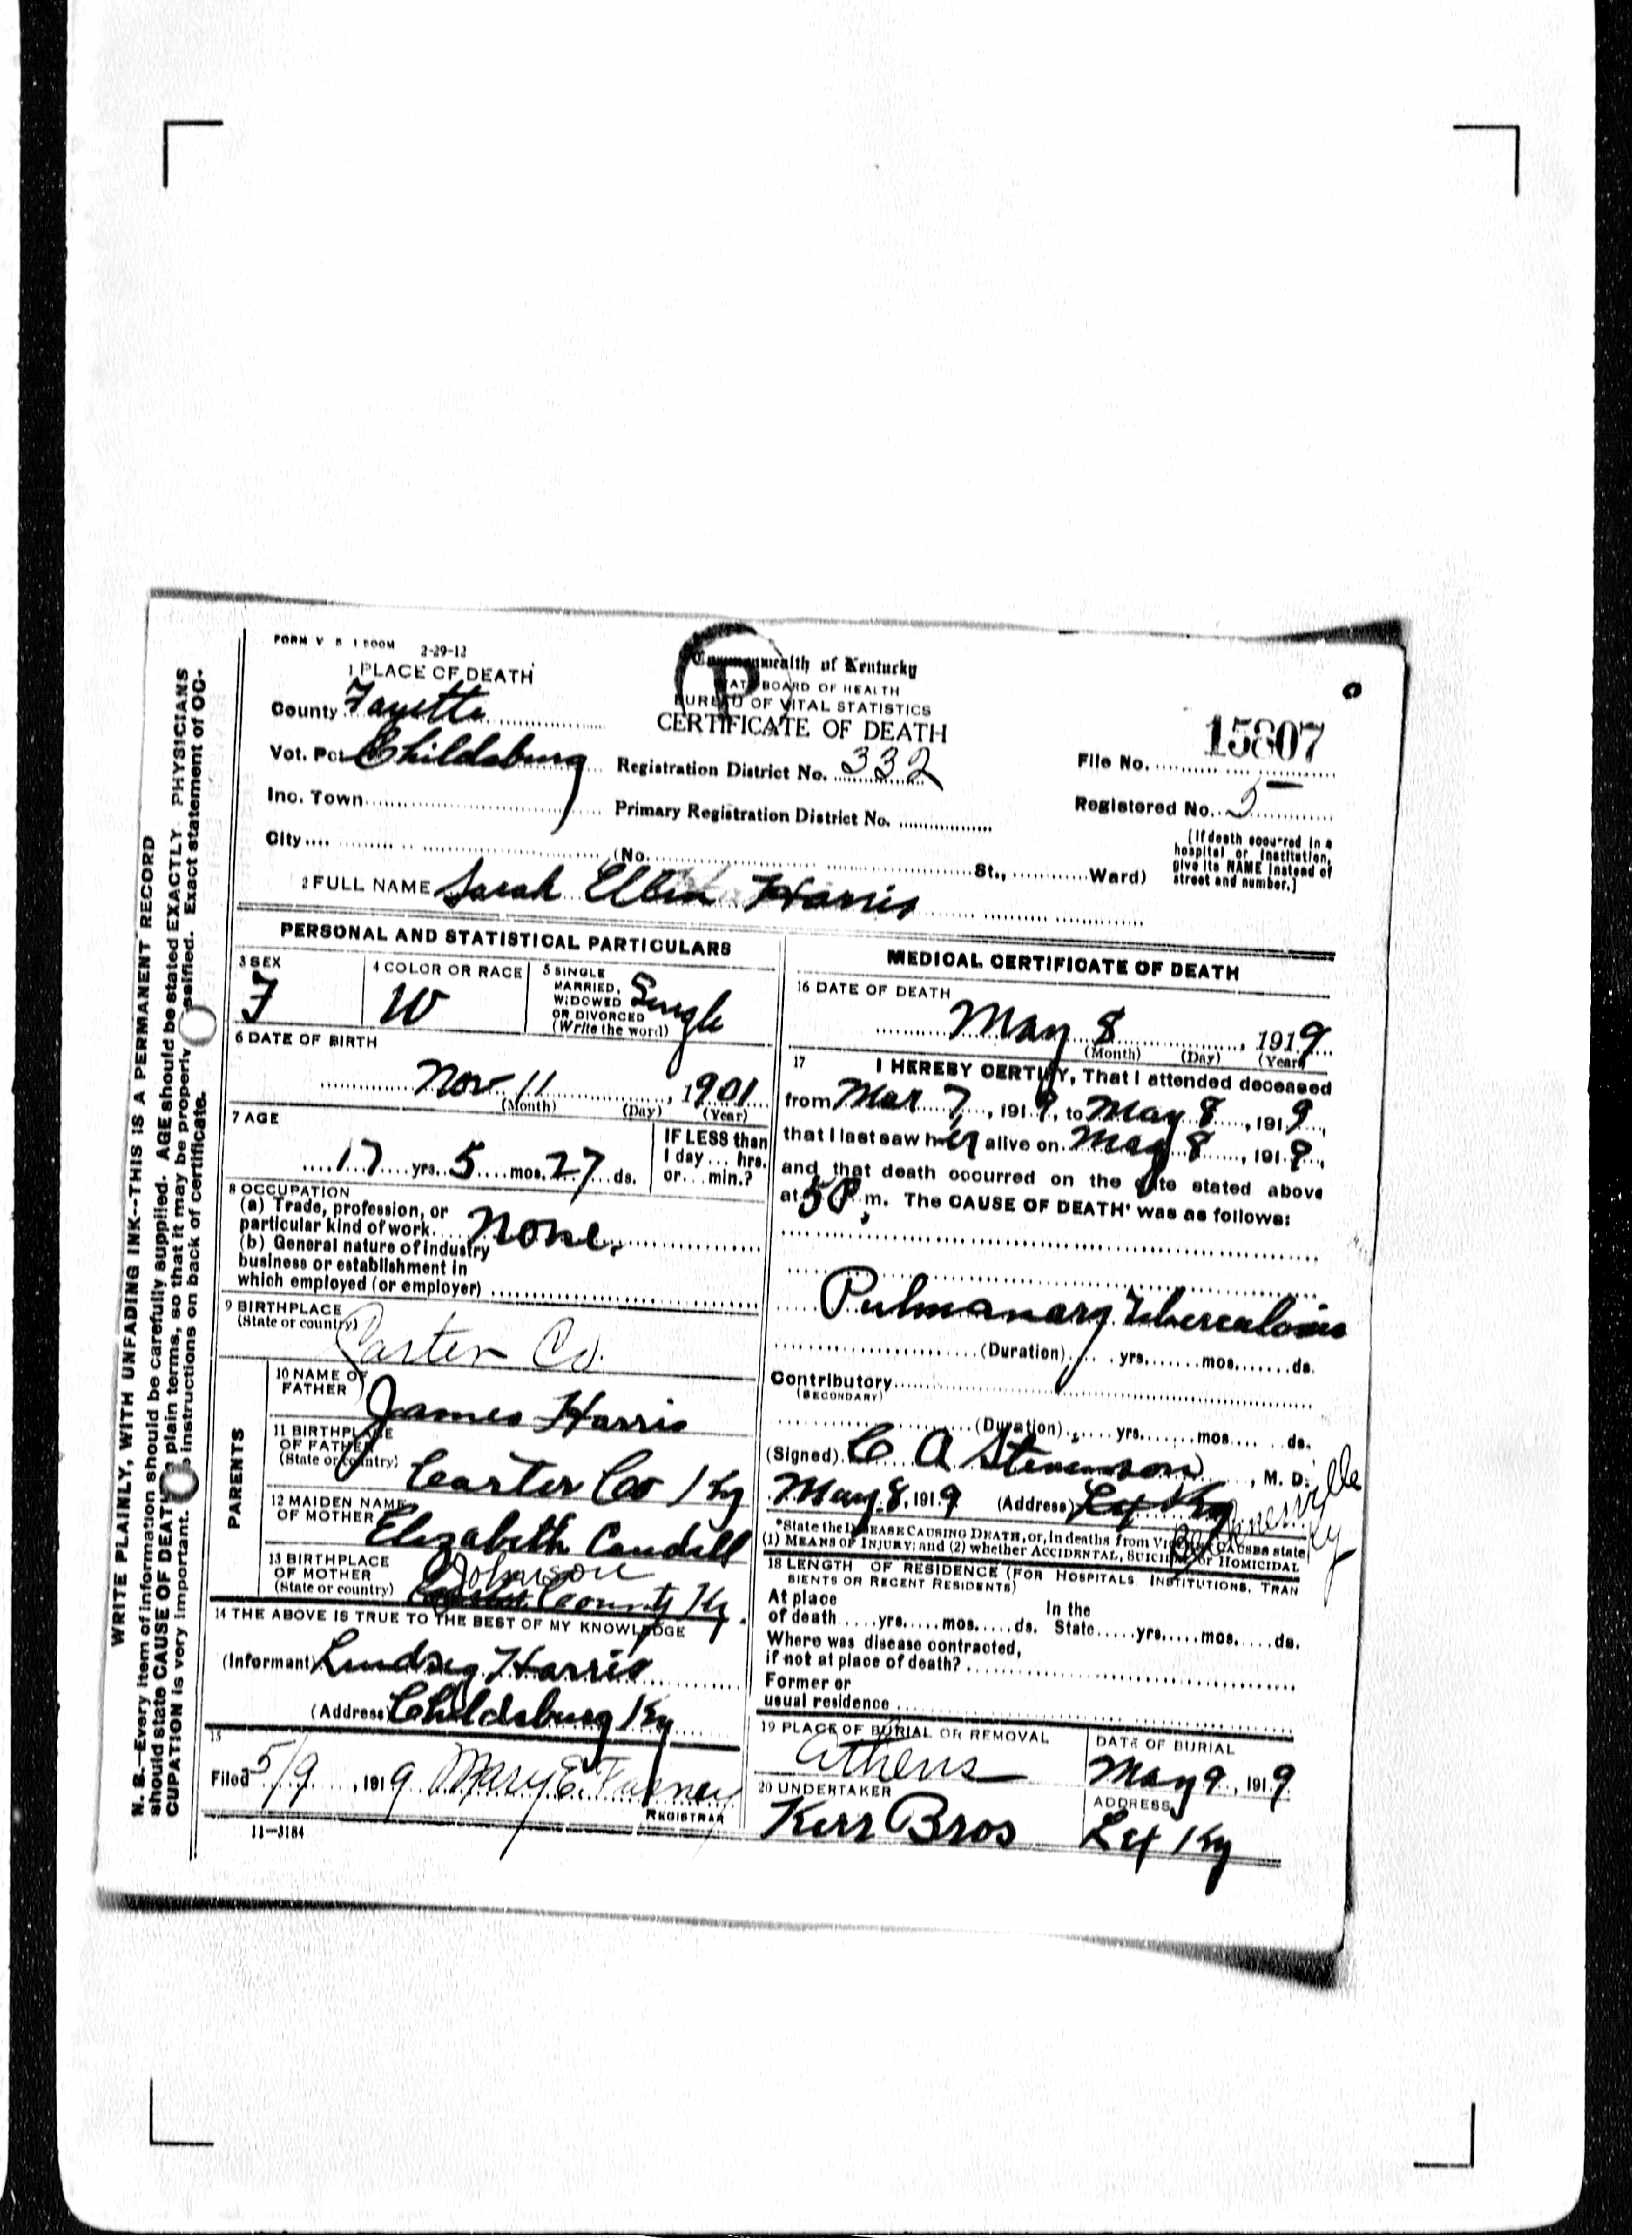 FORM V S 1 500M 2-29-12
1 PLACE OF DEATH
Commonwealth of Kentucky
STATE BOARD OF HEALTH
BUREAU OF VITAL STATISTICS
CERTIFICATE OF DEATH
County Fayette
Vot. Pct Childsburg
Registration District No. 332
File No. 15807
Inc. Town
Primary Registration District No.
Registered No. 5
City (No. St., Ward)
(If death occurred in a
hospital or institution,
give its NAME instead of
street and number.)
2 FULL NAME Sarah Ellen Harris
PERSONAL AND STATISTICAL PARTICULARS
3 SEX
F
4 COLOR OR RACE
W
5 SINGLE
MARRIED,
WIDOWED
OR DIVORCED
(Write the word)
Single
6 DATE OF BIRTH
Nov 11, 1901
(Month) (Day) (Year)
7 AGE
17 yrs. 5 mos. 27 ds.
IF LESS than
1 day ... hrs.
or ... min.?
8 OCCUPATION
(a) Trade, profession, or
particular kind of work. None.
(b) General nature of industry
business or establishment in
which employed (or employer)
9 BIRTHPLACE
(State or country)
Carter Co.
PARENTS
10 NAME OF
FATHER
James Harris
11 BIRTHPLACE
OF FATHER
(State or country)
Carter Co Ky
12 MAIDEN NAME
OF MOTHER
Elizabeth Caudill
13 BIRTHPLACE
OF MOTHER
(State or country)
Johnson
County Ky.
14 THE ABOVE IS TRUE TO THE BEST OF MY KNOWLEDGE
(Informant) Lindsey Harris
(Address) Childsburg Ky
15
Filed 5/9, 1919 Mary E.
REGISTRAR
11-3184
MEDICAL CERTIFICATE OF DEATH
16 DATE OF DEATH
May 8, 1919
(Month) (Day) (Year)
17 I HEREBY CERTIFY, That I attended deceased
from Mar 7, 1919, to May 8, 1919,
that I last saw her alive on May 8, 1919,
and that death occurred on the date stated above
at 5 P m. The CAUSE OF DEATH* was as follows:
Pulmanary Tuberculosis
(Duration) yrs. mos. ds.
Contributory
(SECONDARY)
(Duration) yrs. mos. ds.
(Signed) C A Stevenson, M. D.
May 8, 1919 (Address) Lex Ky
Ky
*State the DISEASE CAUSING DEATH, or, in deaths from VIOLENT CAUSES state
(1) MEANS OF INJURY; and (2) whether ACCIDENTAL, SUICIDAL or HOMICIDAL
18 LENGTH OF RESIDENCE (FOR HOSPITALS INSTITUTIONS, TRAN
SIENTS OR RECENT RESIDENTS)
At place
of death yrs. mos. ds.
In the
State yrs. mos. ds.
Where was disease contracted,
if not at place of death?
Former or
usual residence
19 PLACE OF BURIAL OR REMOVAL
Athens
DATE OF BURIAL
May 9, 1919
20 UNDERTAKER
Kerr Bros
ADDRESS
Lex Ky
WRITE PLAINLY, WITH UNFADING INK--THIS IS A PERMANENT RECORD
N. B.--Every item of information should be carefully supplied. AGE should be stated EXACTLY. PHYSICIANS
should state CAUSE OF DEATH plain terms, so that it may be properly classified. Exact statement of OC-
CUPATION is very important. instructions on back of certificate.